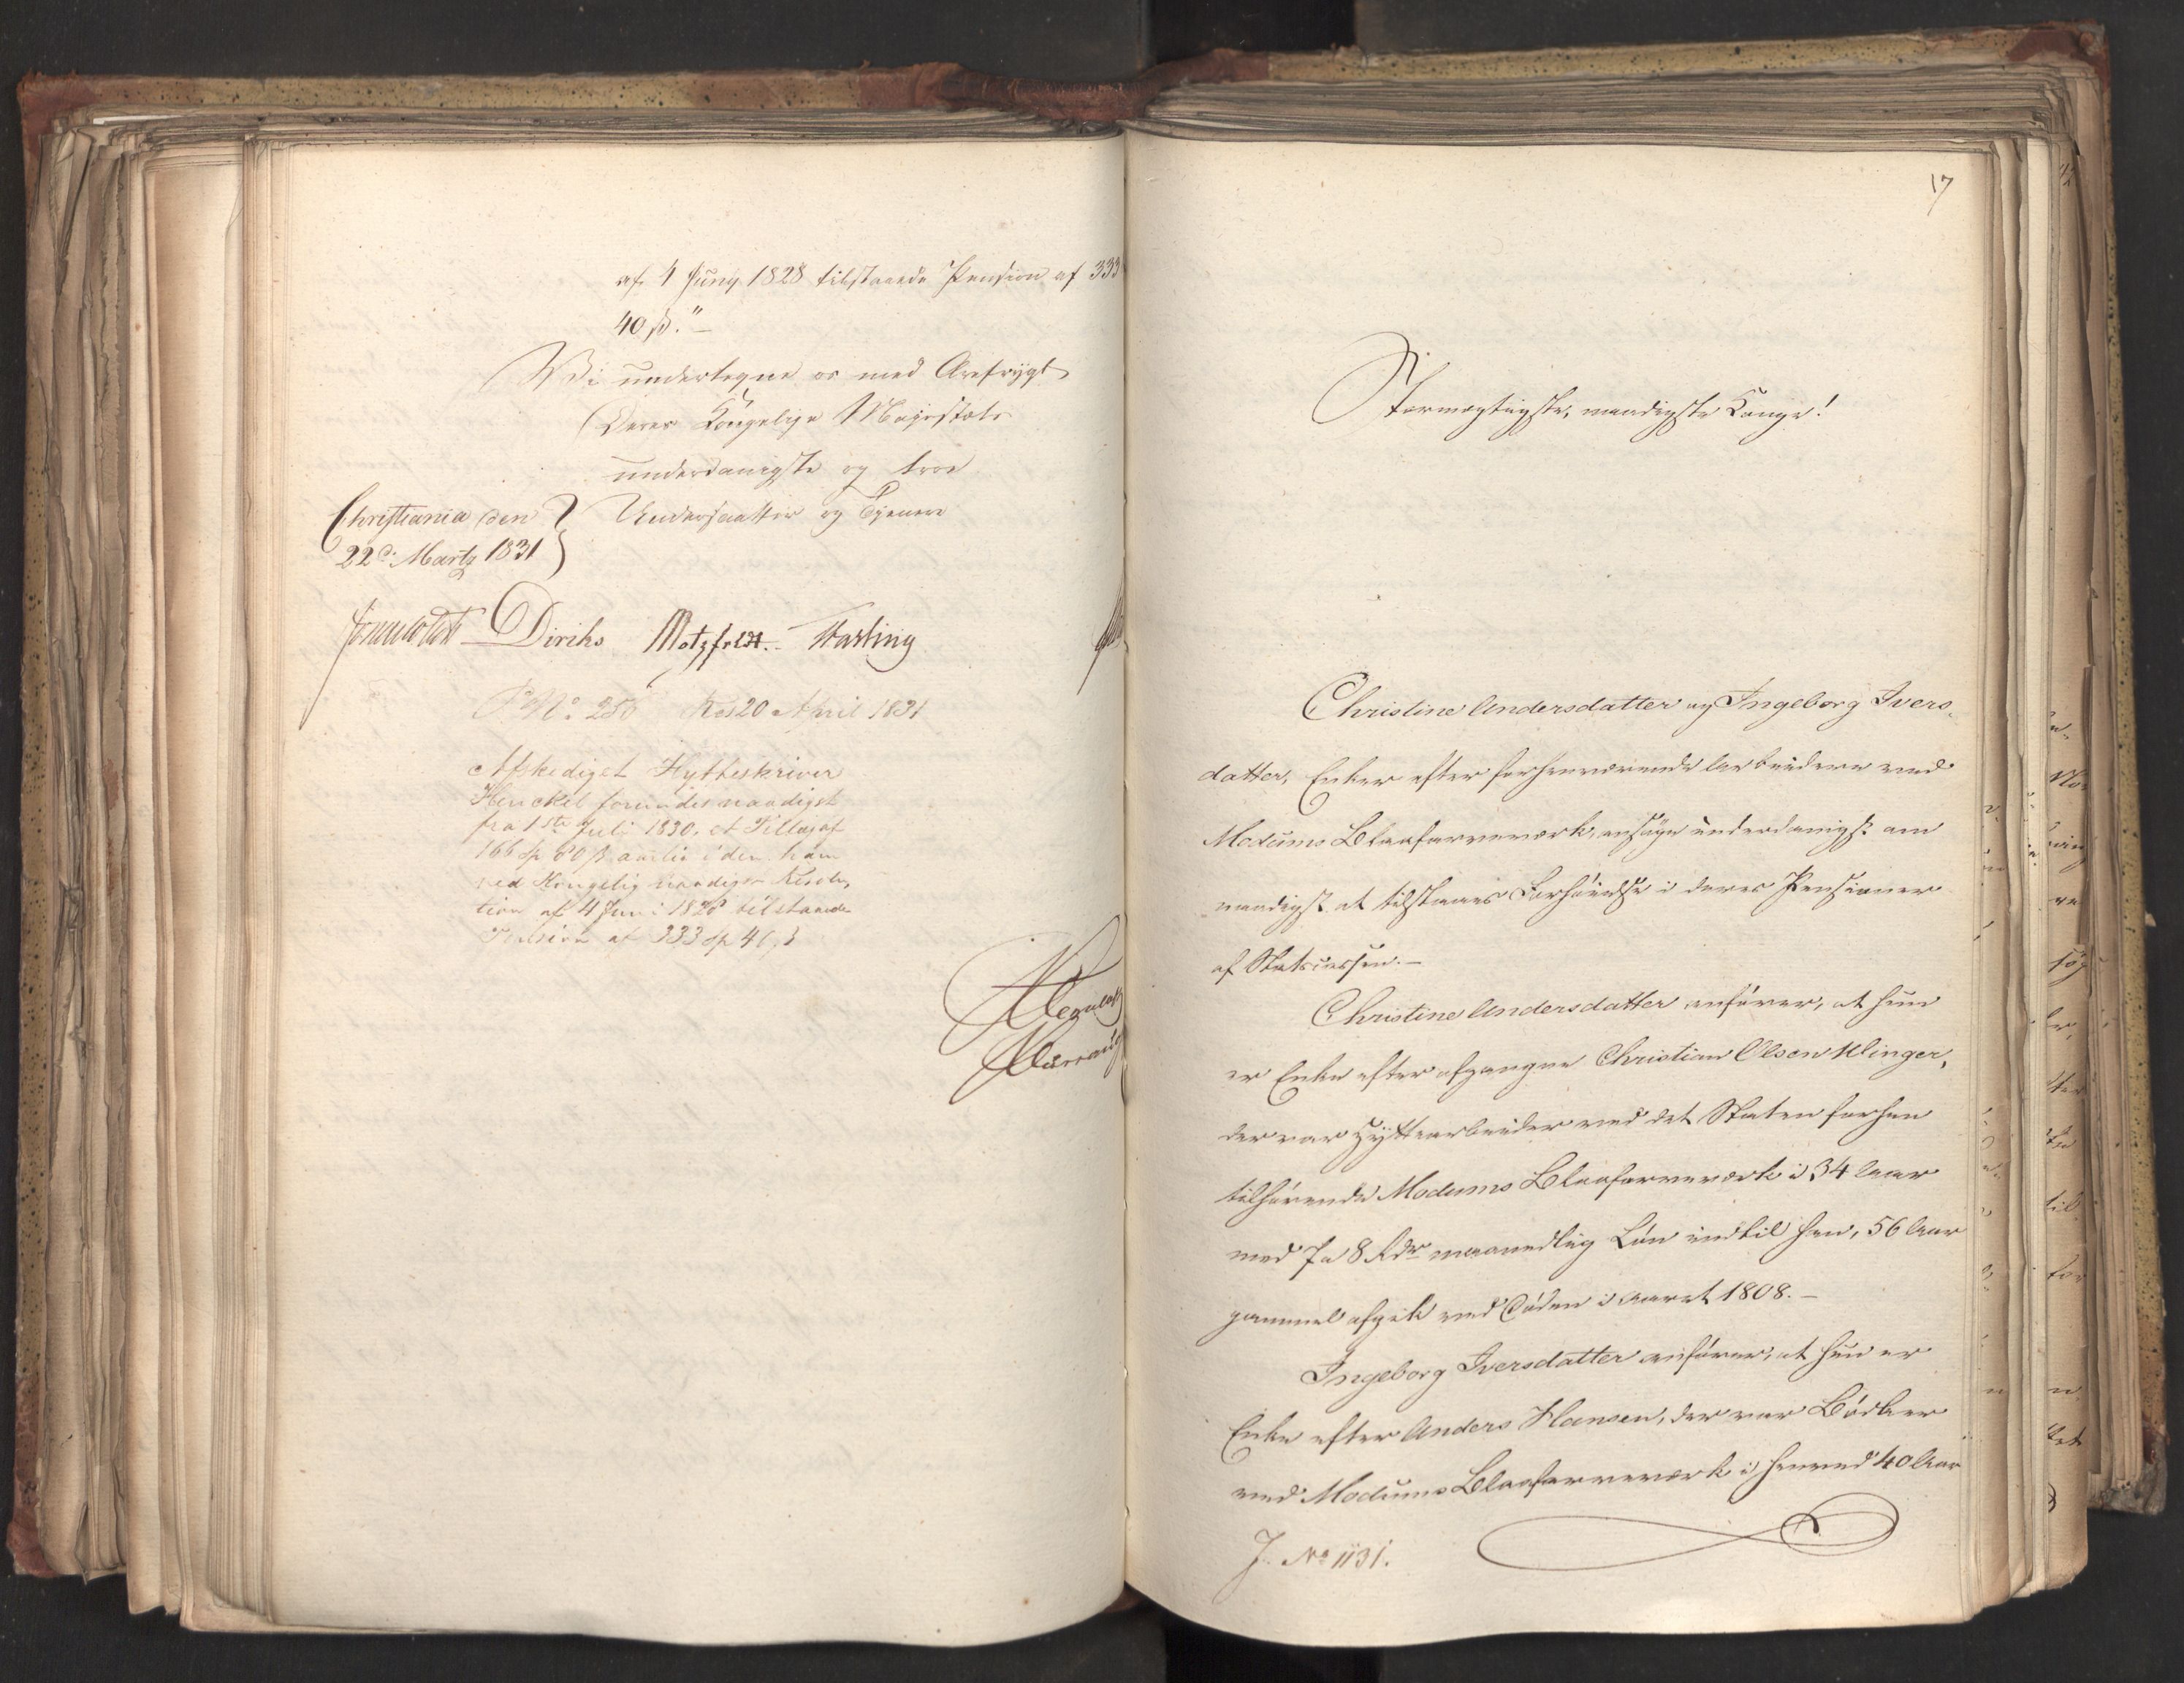 af 4 Juny 1828 tilstaaede Pension af 333
40 ß."
Vi undertegne os med Ærefrygt
Deres Kongelige Majestæts
underdanigste og troe
Undersaatter og Tjenere
Christiania den
22d Martz 1831
Diriks Motzfeldt
P No 256 Res 20 April 1831
Afskediget Hytteskriver
Henckel forundes naadigst
fra 1ste Juli 1830, et Tillæg af
166 Sp 80 ß aarlig i den ham
ved Kongelig naadigst Resolu,
tion af 4 Juni 1828 tilstaaede
Pension af 333 Sp 40 ß
17
Stormægtigste, naadigste Konge!
Christine Andersdatter og Ingeborg Ivers,
datter, Enker efter forhenværende Arbeidere ved
Modums Blaafarveværk, ansøge underdanigst om
naadigst at tilstaaes Forhøielse i deres Pensioner
af Statscassen.—
Christine Andersdatter anfører, at hun
er Enke efter afgangne Christian Olsen Klinger,
der var Hyttearbeider ved det Staten forhen
tilhørende Modums Blaafarveværk i 34 Aar
med 7 a 8 Rdr maanedlig Løn indtil han, 56 Aar
gammel afgik ved Døden i Aaret 1808.—
Ingeborg Iversdatter anfører, at hun er
Enke efter Anders Hansen, der var Bødker
ved Modums Blaafarveværk i henved 40 Aar
J. No 1131.